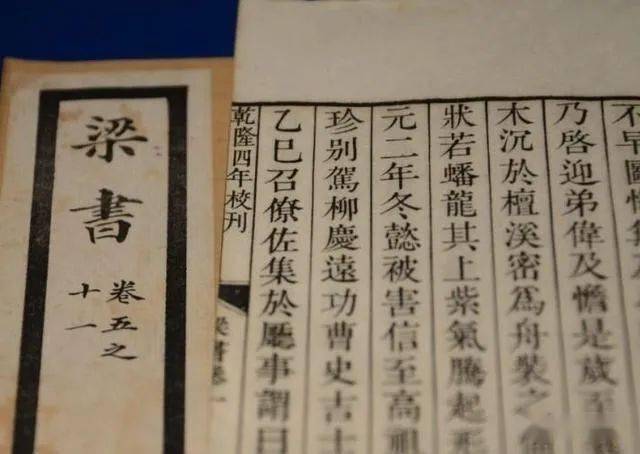 不早圖悔
乃啓迎弟偉及憺是歲至
木沉於檀溪密爲舟裝之
狀若蟠龍其上紫氣騰起形
元二年冬懿被害信至高祖
珍別駕柳慶遠功曹史吉士
乙巳召僚佐集於廳事謂曰
乾隆四年校刊
梁書卷一
梁書
卷五之
十一